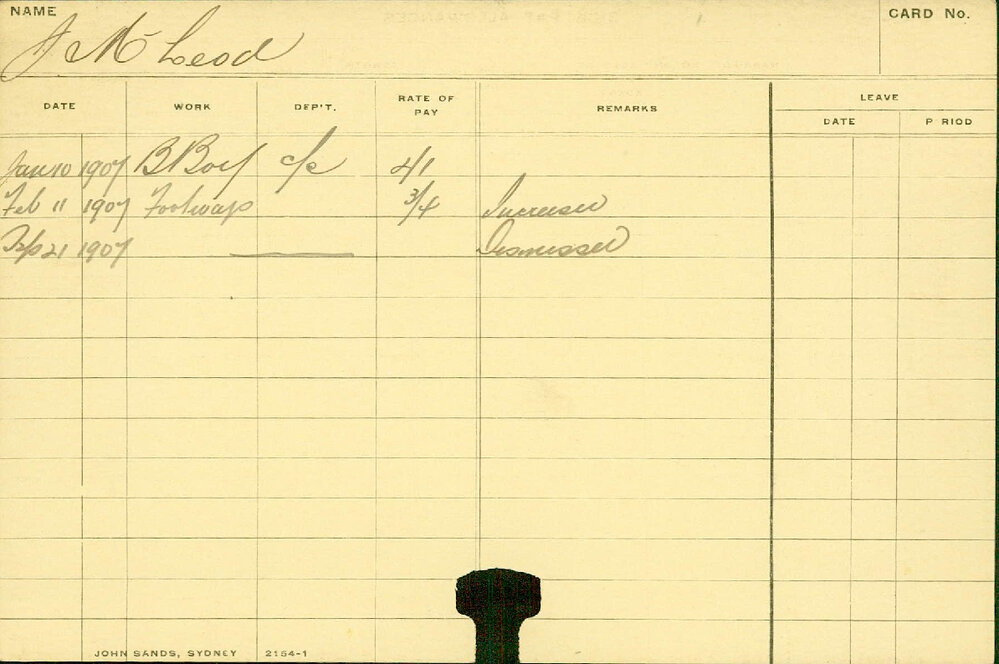 NAME
J McLeod
CARD No.
DATE WORK DEP'T. RATE OF PAY REMARKS LEAVE
DATE P RIOD
Jan 10 1907 B Boy c/c
Feb 11 1907 Footways 3/4 Increased
Sep 21 1907 Dismissed
JOHN SANDS, SYDNEY 2154-1